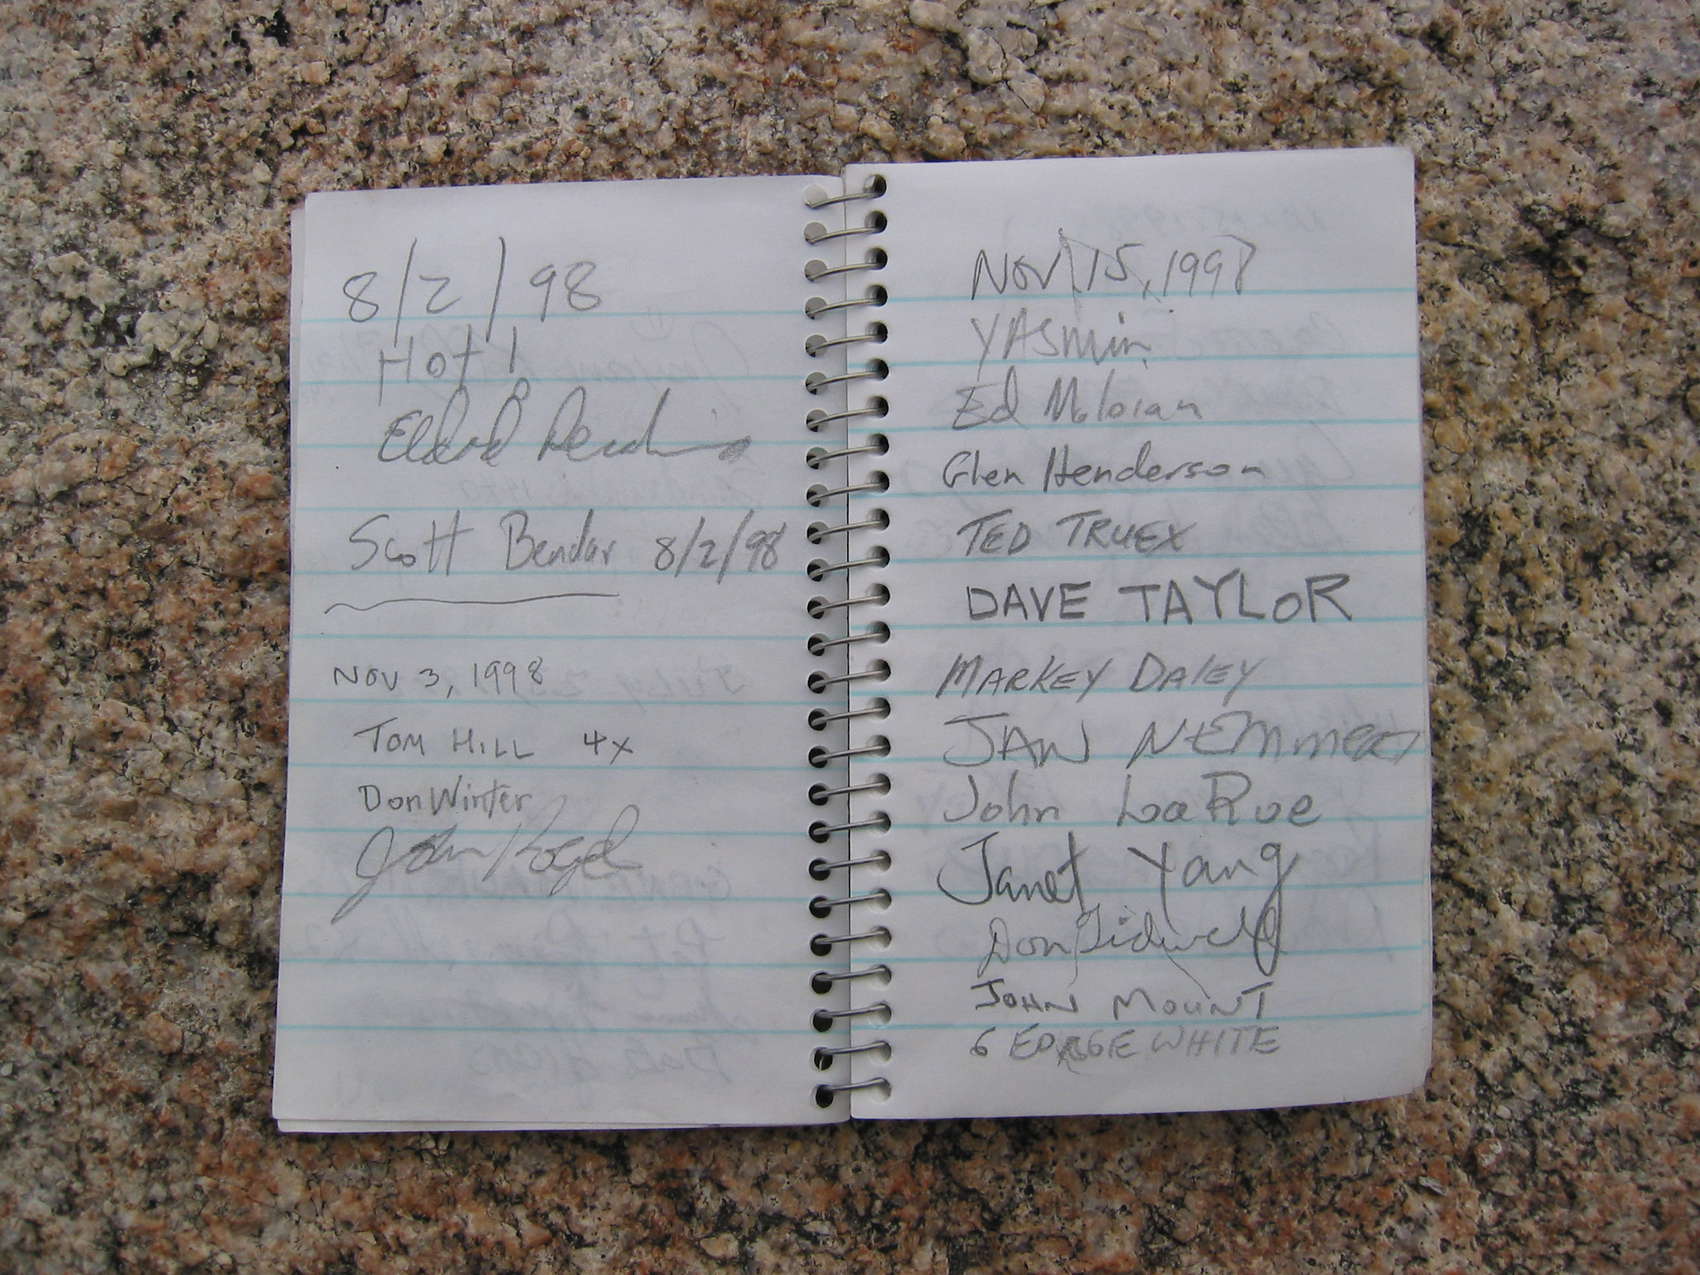 8/2/98
Hot!
Scott Bendar 8/2/98
Nov 3, 1998
TOM HILL 4x
Don Winter
John
Nov 15, 1998
YASMin
Ed
Glen Henderson
TED TRUEX
DAVE TAYLOR
MARKEY DALEY
JAN
John LaRue
Janet Yang
Don Tidwell
JOHN MOUNT
GEORGE WHITE